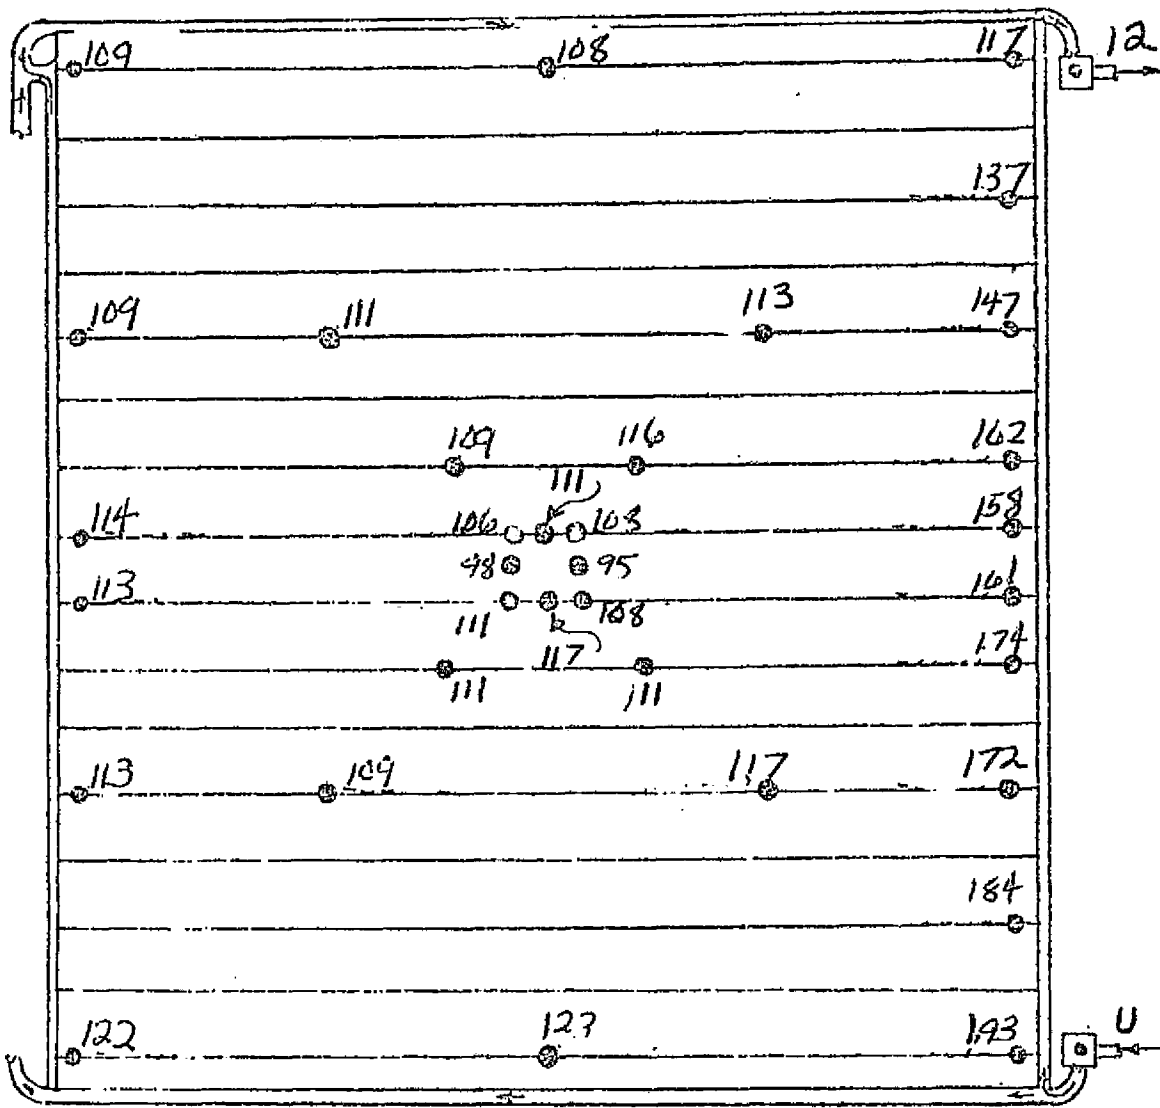 109 108 117 12
137
109 111 113 147
109 116 162
111
114 106 103 158
98 95
113 161
111 108
117 174
111 111
113 109 117 172
184
122 123 143 U